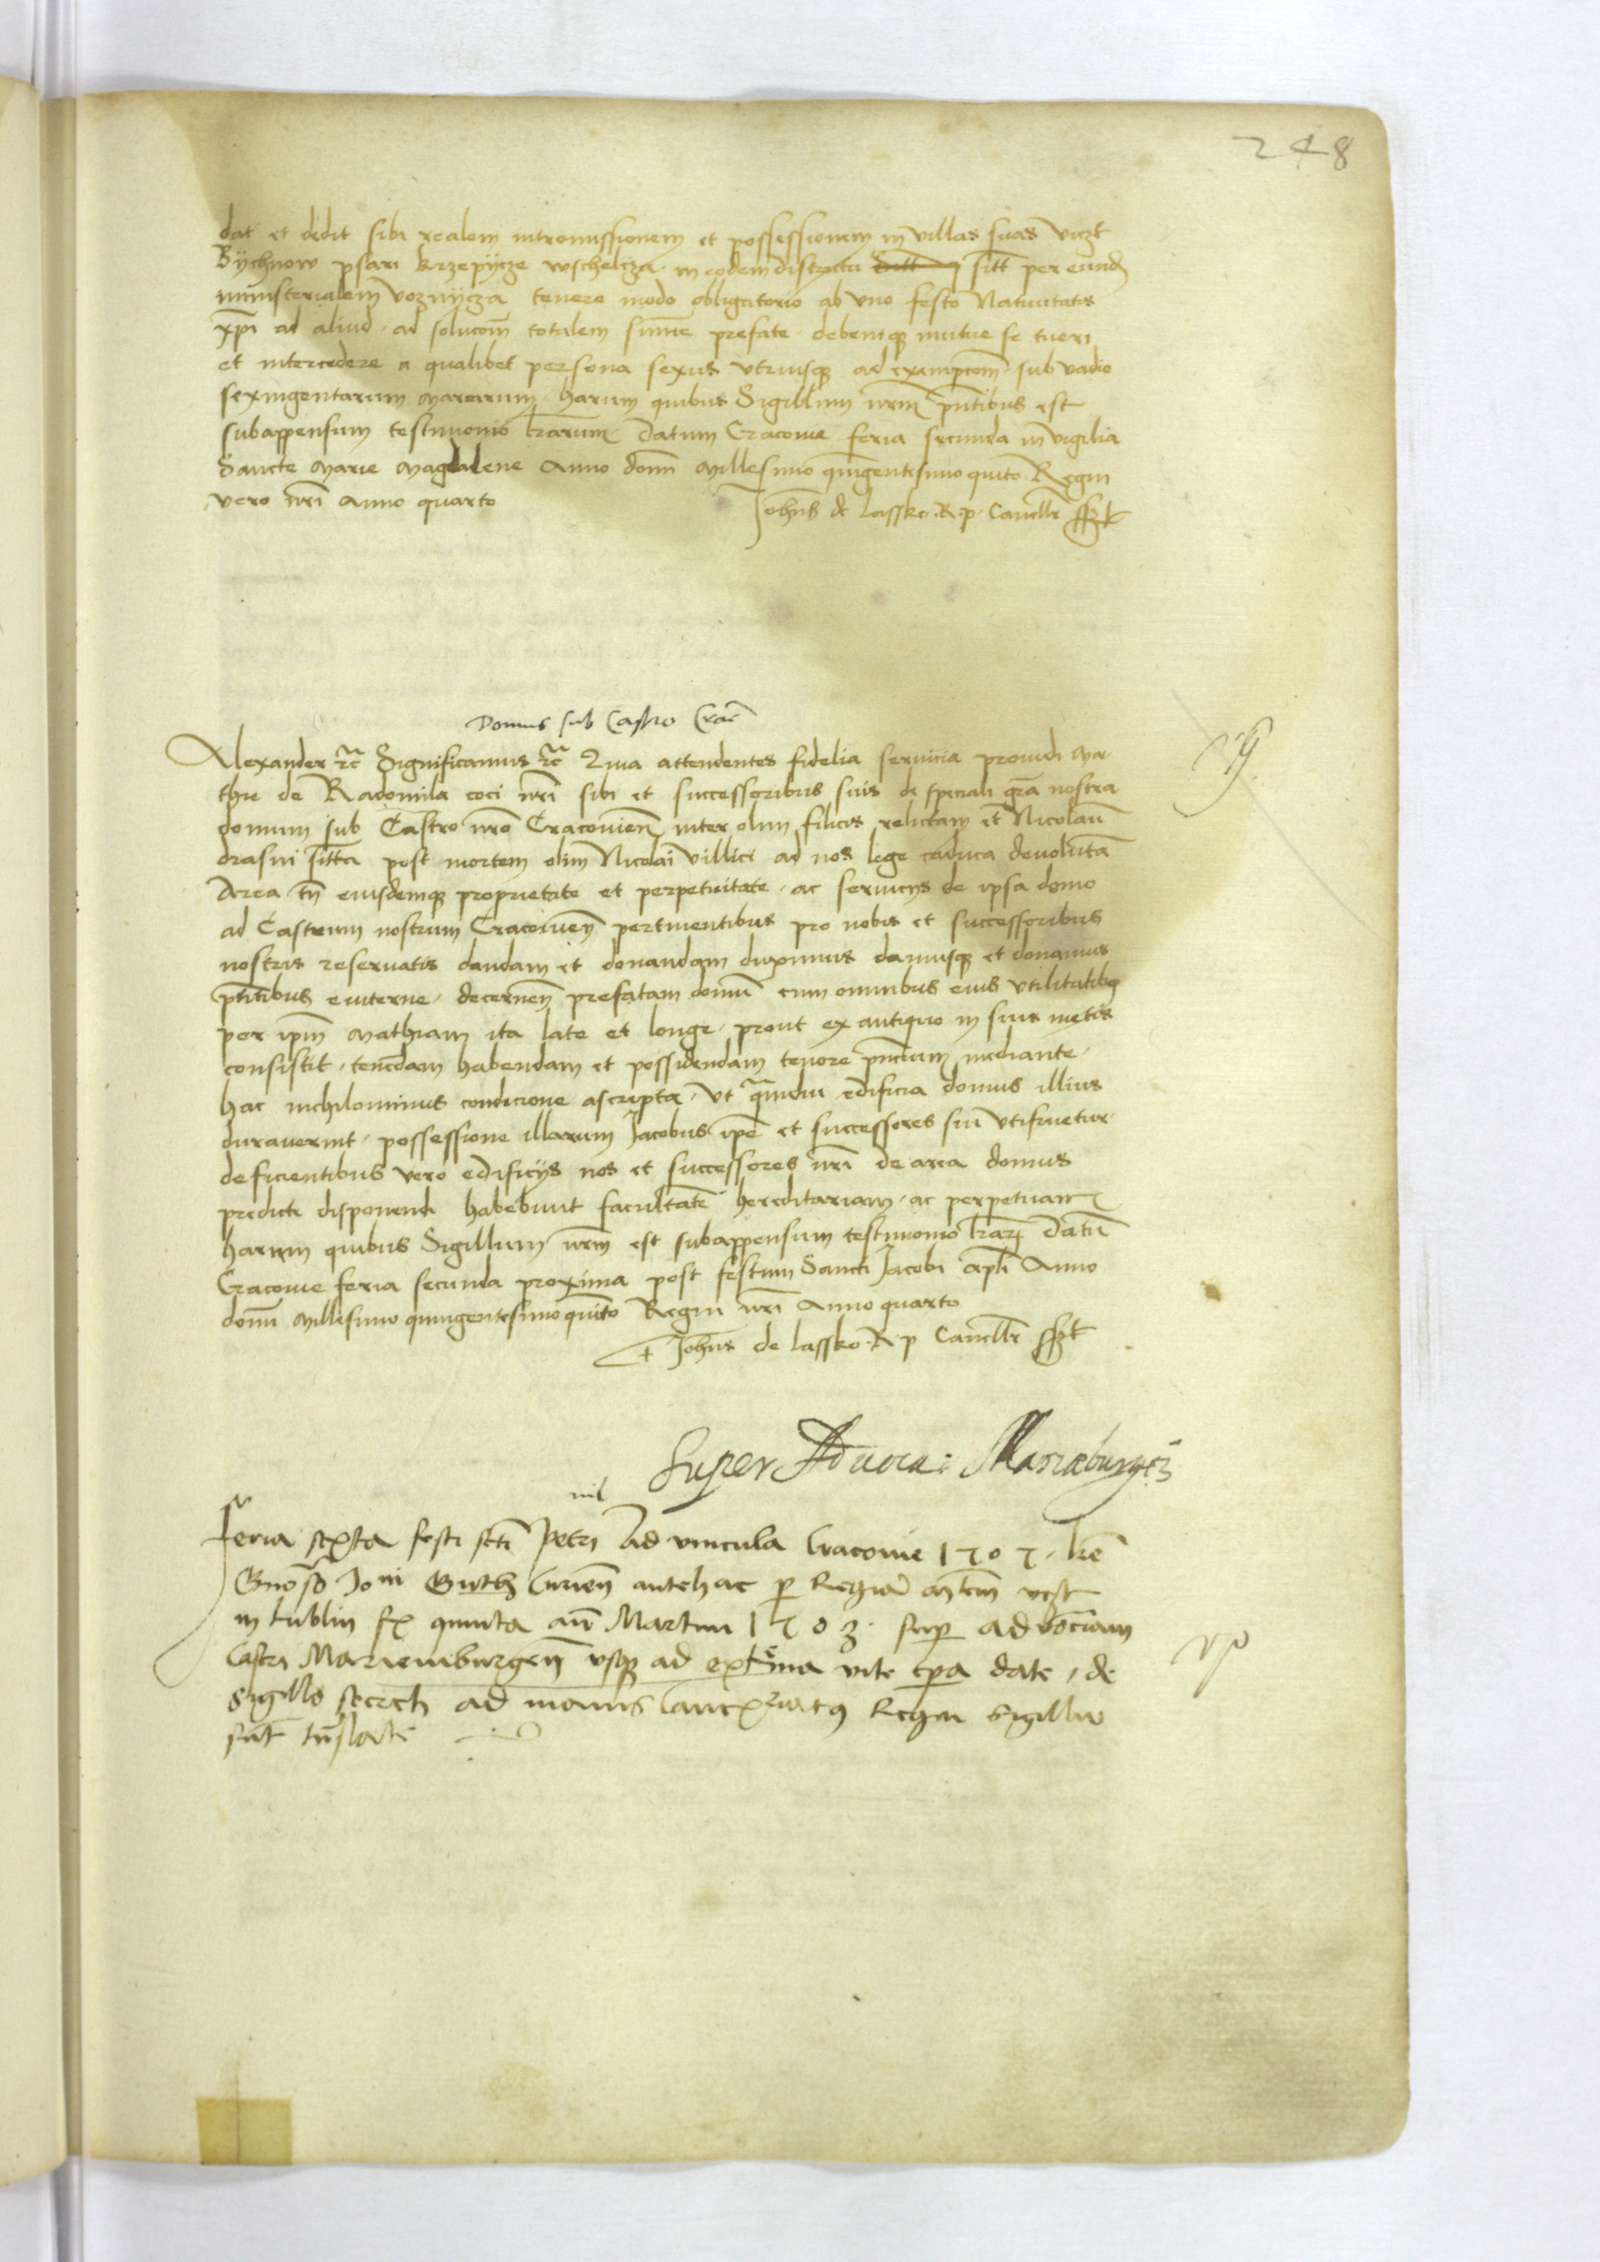 248
dat et dedit sibi realem intromissionem et possessionem in villas suas viczt
Bÿchnow psari krzepÿcze wschelcza in eodem districtu sitt per eund
ministerialem voznÿcza tenere modo obligatorio ab vno festo Natiuitatis
xpi ad aliud ad solucom totalem sume prefate debentq mutue se tueri
et intercedere a qualibet persona sexus vtriusq ad exempcom sub vadio
sexingentarum marcarum harum quibus Sigillum nrm pntibus est
subappensum testimonio lrarum Datum Cracouie feria secunda in vigilia
Sancte Marie Magdalene Anno domi Millesimo quingentesimo quito Regni
vero nri Anno quarto
Johns de Lassko R p Cancellr sszt
Domus sub Castro Crac
Alexander etc Significamus etc Quia attendentes fidelia seruicia prouidi Ma-
thie de Radomila coci nri sibi et successoribus suis de speciali gra nostra
domum sub Castro nro Cracouien inter olim filicis relictam et Nicolaum
drasni sitta post mortem olim Nicolai villici ad nos lege caduca deuoluta
Area tn eiusdemq proprietate et perpetuitate ac seruicÿs de ipsa domo
ad Castrum nostrum Cracouien pertinentibus pro nobis et successoribus
nostris reseruatis dandam et donandam duximus damusq et donamus
pntibus euiterne decernen prefatam domu cum omnibus eius vtilitatibq
per ipm Mathiam ita late et longe prout ex antiquo in suis metis
consistit tenedam habendam et possidendam tenore pncium mediante
hac nichilominus condicione ascripta vt quadiu edificia domus illius
durauerint possessione illarum Jacobus ipe et successores sui vtifruetur
deficientibus vero edificÿs nos et successores nri de area domus
predicte disponendi habebunt facultate hereditariam ac perpetuam
harum quibus Sigillum nrm est subappensum testimonio lrar Datu
Cracouie feria secunda proxima post festum Sancti Jacobi apli Anno
domi Millesimo quingentesimo quito Regni nri Anno quarto
Johns de Lassko R p Cancellr sszt
Super Aduoca: Mariæburgen
nil
Feria sexta festi scti Petri Ad vincula Cracouie 1505 lre
Gnoso Joni Guth Curien antehac p Regia
in lublin fr quinta an Martini 1503 sup aduociam
Castri Marienburgen vsq ad extrema vite tpa date de
Sigillo secreti ad maius Regni Sigillu
sut tnslate